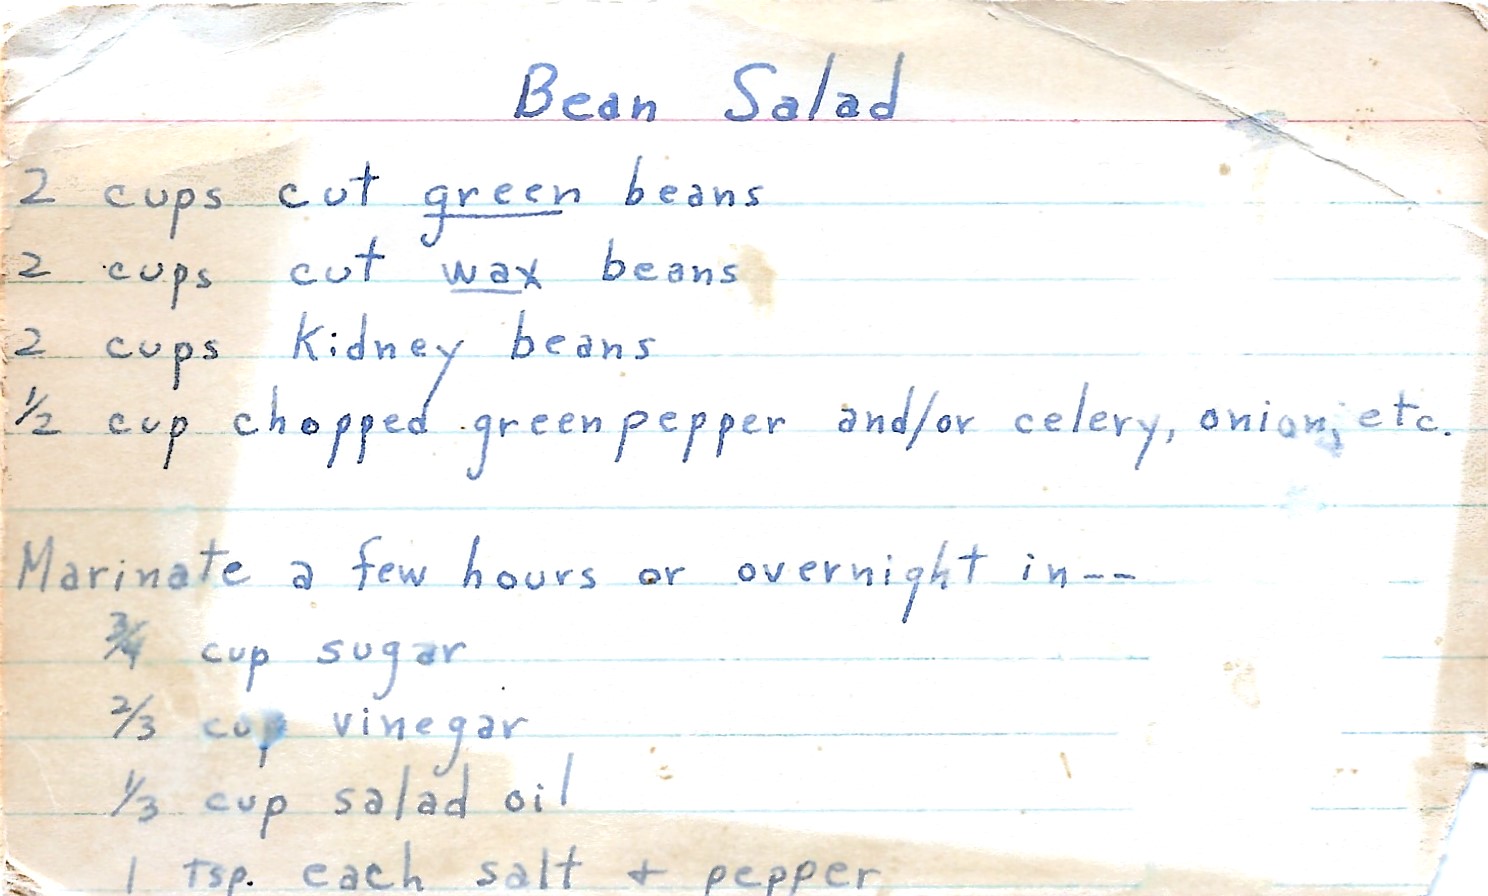 Bean Salad
2 cups cut green beans
2 cups cut wax beans
2 cups kidney beans
½ cup chopped green pepper and/or celery, onion, etc.
Marinate a few hours or overnight in--
¾ cup sugar
⅔ cup vinegar
⅓ cup salad oil
1 Tsp. each salt + pepper